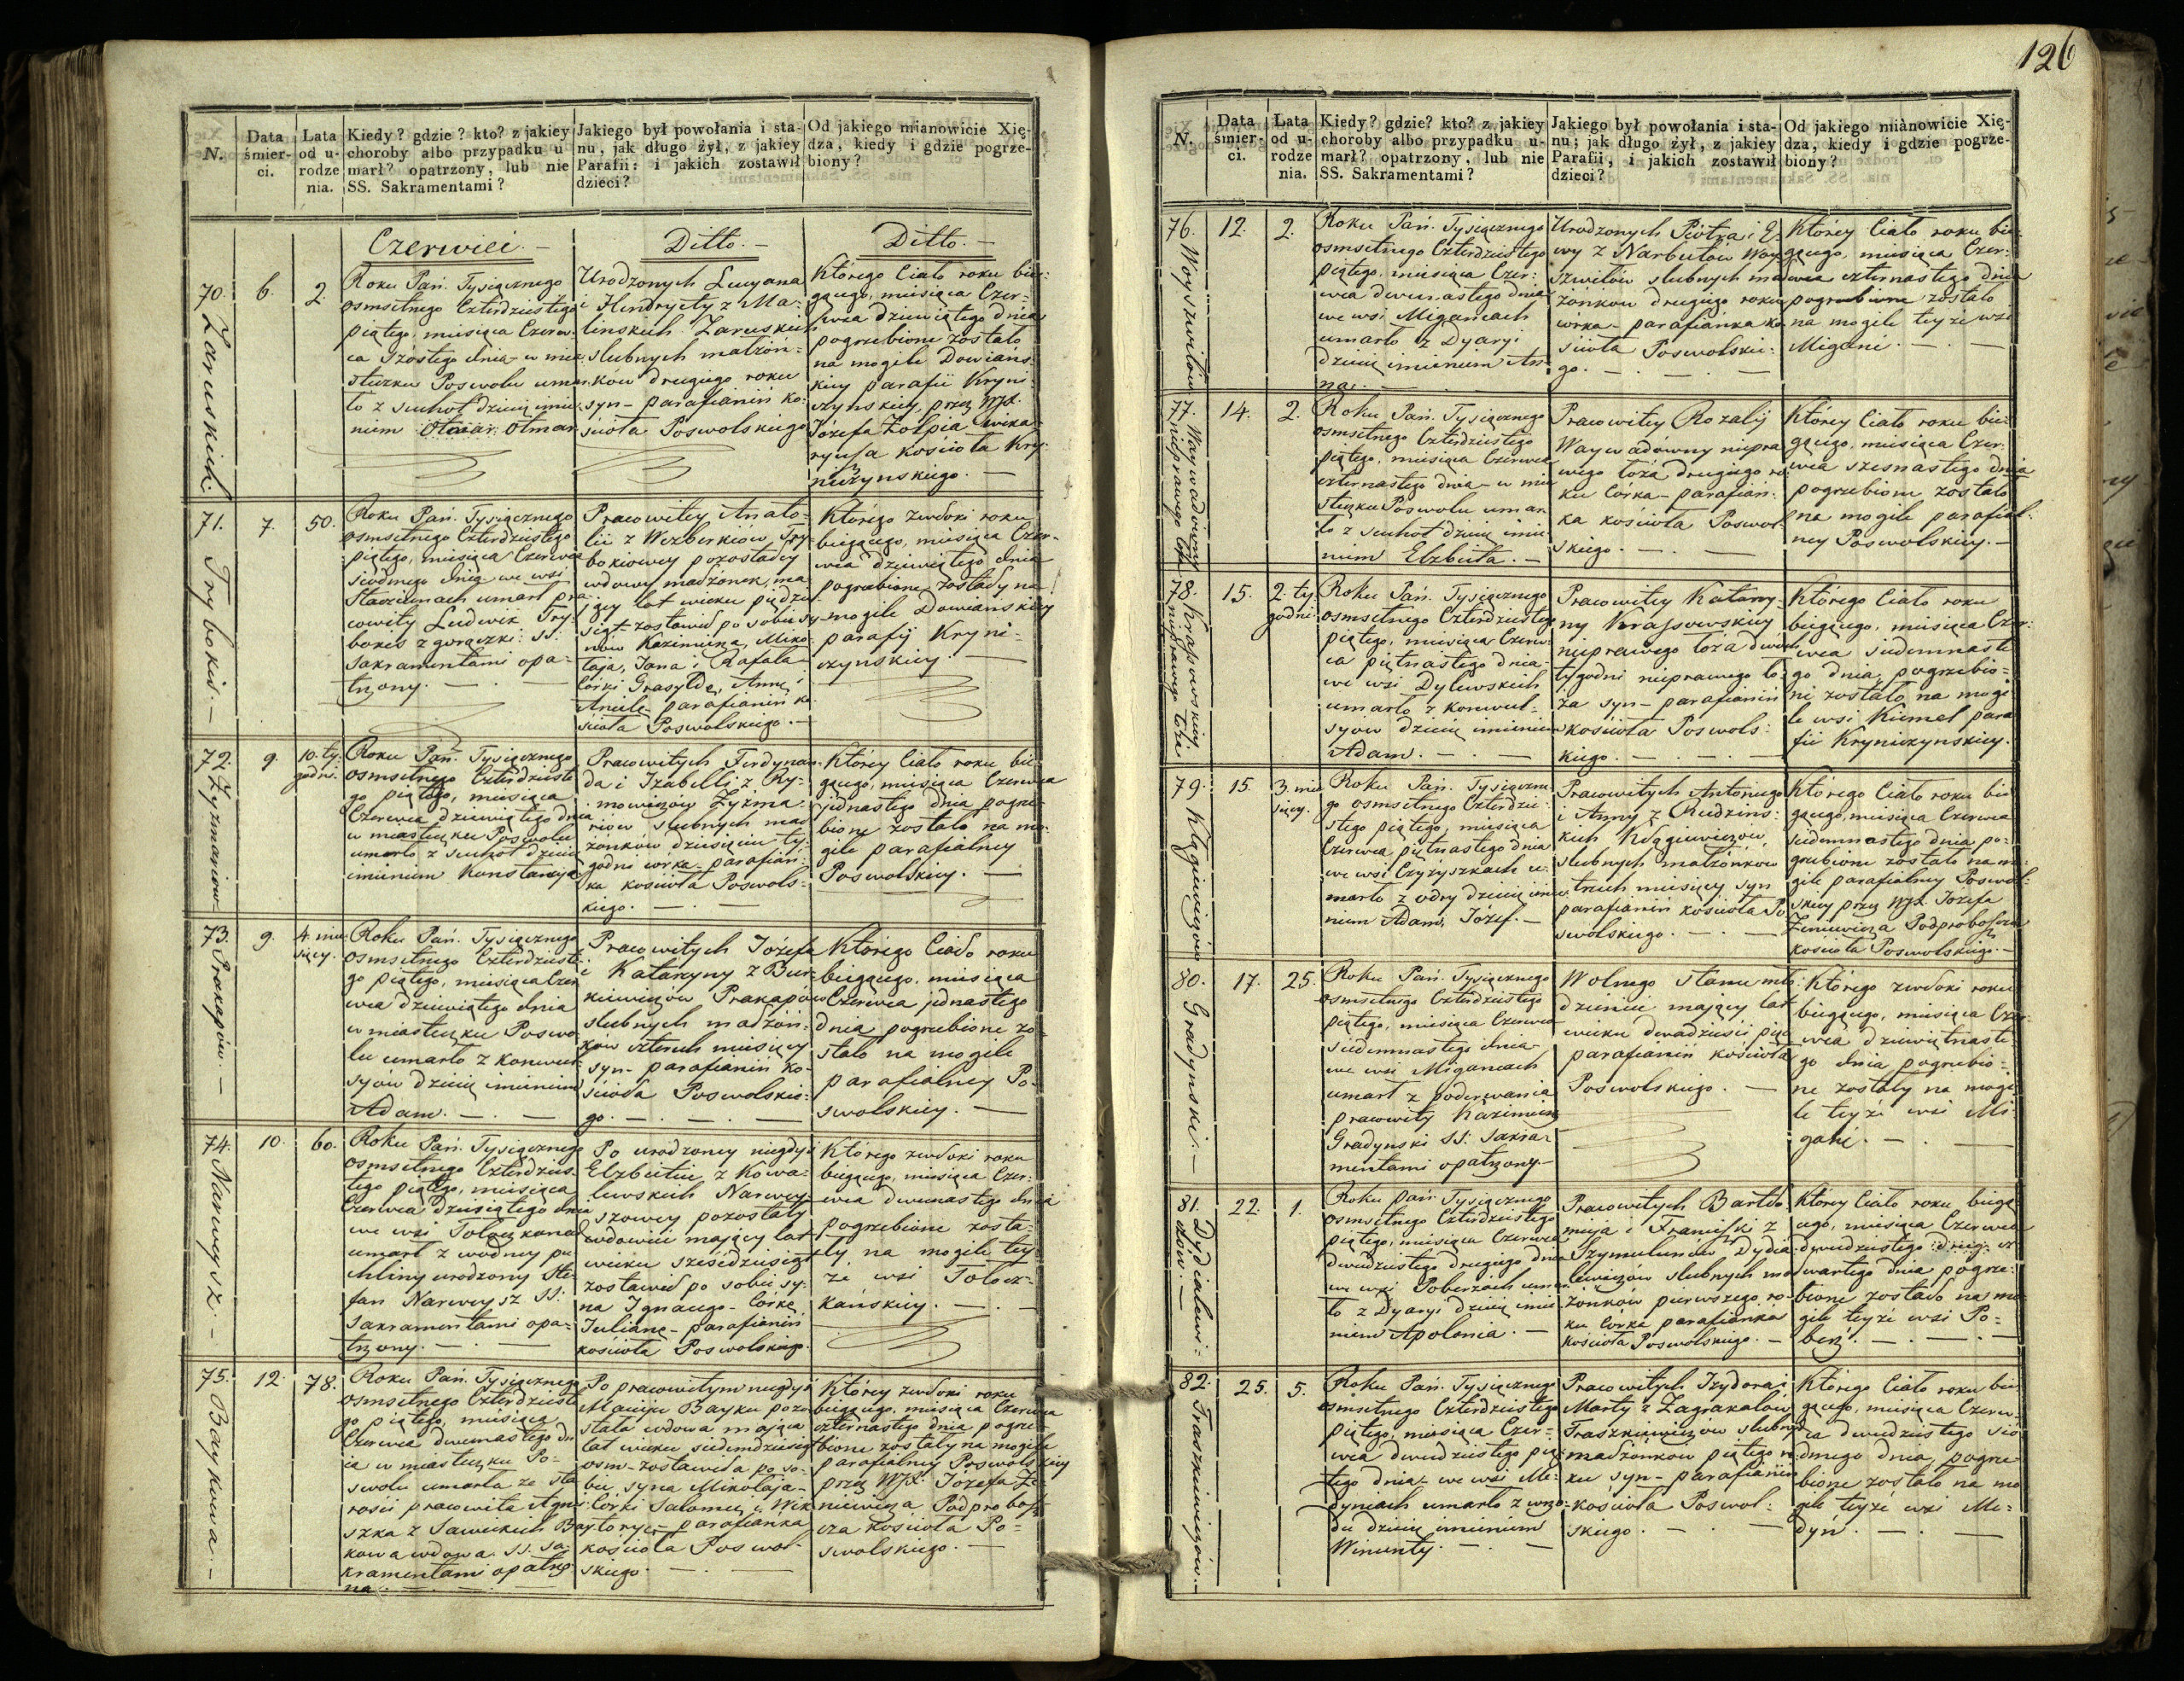 126
N.
Data śmier- ci.
Lata od u- rodze nia.
Kiedy? gdzie? kto? z jakiey
choroby albo przypadku u-
marł? opatrzony, lub nie
SS. Sakramentami?
Jakiego był powołania i sta-
nu, jak długo żył, z jakiey
Parafii: i jakich zostawił
dzieci?
Od jakiego mianowicie Xię-
dza, kiedy i gdzie pogrze-
biony?
Czerwiec. —
Ditto. —
Ditto. —
70. Zaruskich.
6.
2.
Roku Pań. Tysiącznego
osmsetnego Czterdziestego
piątego, miesiąca Czerw-
ca szóstego dnia w mia-
steczku Poswolu umar-
ło z suchot dziecię imie-
niem Otmar
Urodzonych Lucyana
i Hendryety z Ma-
linskich Zaruskich
slubnych małżon-
ków drugiego roku
syn – parafianin ko-
scioła Poswolskiego
Którego Ciało roku bie-
gącego, miesiąca Czer-
wca dziewiątego dnia
pogrzebione zostało
na mogile Dowians-
kiey parafii Kryni-
czynskiey, przez WJX.
Józefa Łotpia wika-
ryusza kościoła Kry-
niczynskiego. —
71. Trybokis. —
7.
50.
Roku Pań. Tysiącznego
osmsetnego Czterdziestego
piątego, miesiąca Czerwca
siódmego dnia we wsi
Stacziunach umarł pra-
cowity Ludwik Try-
bokis z gorączki: SS.
Sakramentami opa-
trzony. —
Pracowitey Anato-
lii z Wezberkiow Try-
bokiowey pozostałey
wdowy małżonek, ma-
jący lat wieku pięćdzie-
siąt – zostawił po sobie sy-
nów Kazimierza, Miko-
łaja, Jana i Rafała
Córki Grasyldę, Annę i
Anielę – parafianin ko-
scioła Poswolskiego. —
Którego zwłoki roku
biegącego, miesiąca Czer-
wca dziewiątego dnia
pogrzebione zostały na
mogile Dowianskiey
parafij Kryni-
czynskiey. —
72. Zyzmariow
9.
10. ty-
godni.
Roku Pań. Tysiącznego
osmsetnego Czterdzieste-
go piątego, miesiąca
Czerwca dziewiątego dnia
w miasteczku Poswolu
umarło z suchot dziecię
imieniem Konstancya
Pracowitych Ferdynan-
da i Izabelli z Ry-
mowiczow Zyzma-
riow slubnych mał-
żonków dziesięciu ty-
godni corka – parafian-
ka kosciola Poswols-
kiego. —
Którey Ciało roku bie-
gącego, miesiąca Czerwca
jednastego dnia pogrze-
bione zostało na mo-
gile parafialney
Poswolskiey. —
73. Prakapów. —
9.
4. mie-
sięcy.
Roku Pań. Tysiącznego
osmsetnego Czterdzieste-
go piątego, miesiąca Czer-
wca dziewiątego dnia
w miasteczku Poswo-
lu umarło z konwul-
syów dziecię imieniem
Adam. —
Pracowitych Józefa
i Katarzyny z Bur-
kiewiczów Prakapów
slubnych małżon-
ków czterech miesięcy
syn – parafianin ko-
scioła Poswolskie-
go. —
Którego Ciało roku
biegącego, miesiąca
Czerwca jednastego
dnia pogrzebione zo-
stało na mogile
parafialney Po-
swolskiey. —
74. Narweysz. —
10.
60.
Roku Pań. Tysiącznego
osmsetnego Czterdzies-
tego piątego, miesiąca
Czerwca dziesiątego dnia
we wsi Tołoczkanach
umarł z wodney pu-
chliny urodzony Ste-
fan Narweysz SS.
Sakramentami opa-
trzony. —
Po urodzoney niegdyś
Elzbiecie z Kowa-
lewskich Narwey-
szowey pozostały
wdowiec mający lat
wieku sześćdziesiąt
zostawił po sobie sy-
na Ignacego – Córkę
Juliannę – parafianin
kościoła Poswolskiego.
Którego zwłoki roku
biegącego, miesiąca Czer-
wca dwunastego dnia
pogrzebione zosta-
ły na mogile tey-
że wsi Tołocz-
kańskiey. —
75. Baykowa. —
12.
78.
Roku Pań. Tysiącznego
osmsetnego Czterdzieste-
go piątego, miesiąca
Czerwca dwunastego dn-
ia w miasteczku Po-
swolu umarła ze sta-
rości pracowita Agni-
szka z Sawickich Bay-
kowa wdowa SS. Sa-
kramentami opatrzo-
na. —
Po pracowitym niegdyś
Macieju Bayku pozo-
stała wdowa mająca
lat wieku siedmdziesiąt
osm – zostawiła po so-
bie syna Mikołaja –
Córki Salomeę i Wik-
toryę – parafianka
kościoła Poswol-
skiego. —
Którey zwłoki roku
biegącego, miesiąca Czerwca
czternastego dnia pogrze-
bione zostały na mogile
parafialney Poswolskiey
przez WJX. Józefa Ze-
niewicza Podprobosz-
cza kościoła Po-
swolskiego. —
N.
Data śmier- ci.
Lata od u- rodze nia.
Kiedy? gdzie? kto? z jakiey
choroby albo przypadku u-
marł? opatrzony, lub nie
SS. Sakramentami?
Jakiego był powołania i sta-
nu; jak długo żył, z jakiey
Parafii, i jakich zostawił
dzieci?
Od jakiego miànowicie Xię-
dza, kiedy i gdzie pogrze-
biony?
76. Woyszwiłow
12.
2.
Roku Pań. Tysiącznego
osmsetnego Czterdziestego
piątego, miesiąca Czer-
wca dwunastego dnia
we wsi Migancach
umarło z Dyaryi
dziecię imieniem An-
na. —
Urodzonych Piotra i E-
wy z Narbutów Woy-
szwiłów slubnych mał-
żonkow drugiego roku
córka – parafianka ko-
ścioła Poswolskie-
go. —
Którey Ciało roku bie-
gącego, miesiąca Czer-
wca czternastego dnia
pogrzebione zostało
na mogile teyże wsi
Migańc. —
77. Waywadowny nieprawego łoża
14.
2.
Roku Pań. Tysiącznego
osmsetnego Czterdziestego
piątego, miesiąca Czerwca
czternastego dnia – w mia-
steczku Poswolu umar-
ło z suchot dziecię imie-
niem Elzbieta. —
Pracowitey Rozalij
Waywadówny niepra-
wego łoża drugiego ro-
ku Córka – parafian-
ka kościoła Poswol-
skiego. —
Którey Ciało roku bie-
gącego, miesiąca Czer-
wca szesnastego dnia
pogrzebione zostało
na mogile parafial-
ney Poswolskiey. —
78. Krasowskiey nieprawego łoża
15.
2. ty-
godni
Roku Pań. Tysiącznego
osmsetnego Czterdziestego
piątego, miesiąca Czerw-
ca piętnastego dnia
we wsi Dylewskich
umarło z konwul-
syów dziecię imieniem
Adam. —
Pracowitey Katarzy-
ny Krasowskiey
nieprawego łoża dwóch
tygodni nieprawego ło-
ża syn – parafianin
kościoła Poswols-
kiego. —
Którego Ciało roku
biegącego, miesiąca Czer-
wca siedemnaste-
go dnia, pogrzebio-
ne zostało na mogi-
le wsi Kiemel para-
fii Kryniczynskiey.
79. Kłągiewiczów
15.
3. mie-
sięcy.
Roku Pań. Tysiączne-
go osmsetnego Czterdzie-
stego piątego, miesiąca
Czerwca piętnastego dnia
we wsi Czyzyszkach u-
marło z odry dziecię imie-
niem Adam, Józef. —
Pracowitych Antoniego
i Anny z Rudzins-
kich Kłągiewiczow,
slubnych małżonkow
trzech miesięcy syn
parafianin kościoła Po-
swolskiego. —
Którego Ciało roku bie-
gącego, miesiąca Czerwca
siedemnastego dnia po-
grzebione zostało na mo-
gile parafialney Poswol-
skiey przez WJX. Józefa
Zeniewicza Podproboszcza
kościoła Poswolskiego. —
80. Gradynski. —
17.
25.
Roku Pań. Tysiącznego
osmsetnego Czterdziestego
piątego, miesiąca Czerwca
siedemnastego dnia
we wsi Migancach
umarł z poderwania
pracowity Kazimierz
Gradynski SS. Sakra-
mentami opatrzony. —
Wolnego stanu mło-
dzieniec mający lat
wieku dwadzieścia pięć
parafianin kościoła
Poswolskiego. —
Którego zwłoki roku
biegącego, miesiąca Czer-
wca dziewiętnaste-
go dnia pogrzebio-
ne zostały na mogi-
le teyże wsi Mi-
gańc. —
81. Dydialewi-
czow. —
22.
1.
Roku Pań. Tysiącznego
osmsetnego Czterdziestego
piątego, miesiąca Czerwca
dwudziestego drugiego dnia
we wsi Poberżach umar-
ło z Dyaryi dziecię imie-
niem Apolonia. —
Pracowitych Bartło-
mieja i Franciszki z
Szymulunów Dydia-
lewiczów slubnych mał-
żonków pierwszego ro-
ku córka parafianka
kościoła Poswolskiego. —
Którey Ciało roku biegą-
cego, miesiąca Czerwca
dwudziestego cz-
wartego dnia pogrze-
bione zostało na mo-
gile teyże wsi Po-
berż. —
82. Fraszkiewiczów. —
25.
5.
Roku Pań. Tysiącznego
osmsetnego Czterdziestego
piątego, miesiąca Czer-
wca dwudziestego pią-
tego dnia, we wsi Me-
dyniach umarło z wrzo-
du dziecię imieniem
Wincenty. —
Pracowitych Izydora i
Marty z Zagrakałów
Fraszkiewiczów slubnych
małżonkow piątego ro-
ku syn – parafianin
kościoła Poswol-
skiego. —
Którego Ciało roku bie-
gącego, miesiąca Czerw-
ca dwudziestego sió-
dmego dnia, pogrze-
bione zostało na mo-
gile teyże wsi Me-
dyń. —